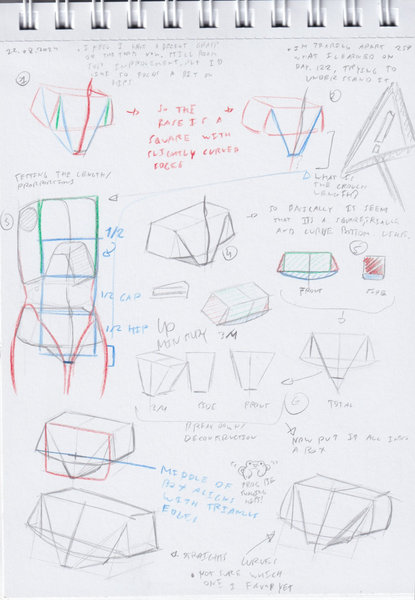 22.08.2024
• I FEEL I HAVE A DECENT GRASP
ON THE TORSO NOW, STILL ROOM
FOR IMPROVEMENT, BUT I'D
LIKE TO FOCUS A BIT ON
HIPS
• I'M TEARING APART
WHAT I LEARNED ON
DAY 122, TRYING TO
UNDERSTAND IT.
258
1
2
→ SO THE →
BASE IS A
SQUARE WITH
SLIGHTLY CURVED
EDGES
WHAT IS
THE CROTCH
LENGTH?
TESTING THE LENGTH/
PROPORTIONS
3
1/2
1/2 CAP
1/2 HIP
4
→ SO BASICALLY IT SEEM
THAT IT'S A SQUARE,TRIANGLE
AND CURVE BOTTOM LINES.
5
FRONT
SIDE
UP
3/4
3/4
SIDE
FRONT
TOTAL
BREAKDOWN/
DECONSTRUCTION
6
NOW PUT IT ALL INTO
A BOX
MIDDLE OF
BOX ALIGNS
WITH TRIANGLE
EDGES
FROG BE
HERE!
STRAIGHTS
CURVES
• NOT SURE WHICH
ONE I FAVOR YET